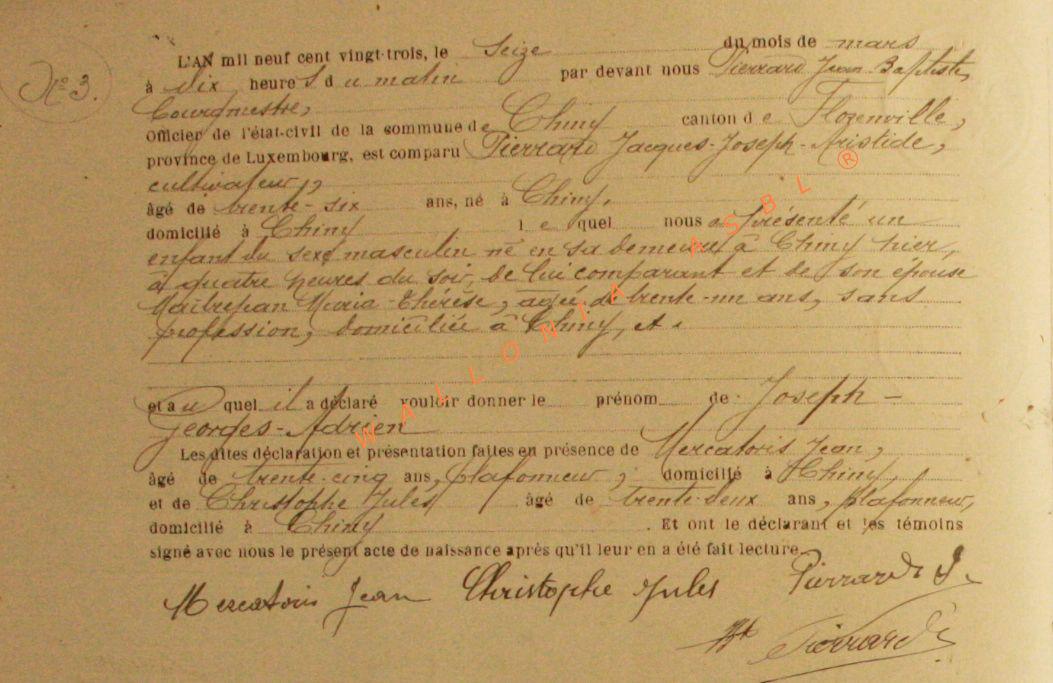 N° 3.
L'AN mil neuf cent vingt-trois, le Seize du mois de mars
à dix heures du matin par devant nous Pierrard Jean-Baptiste,
bourgmestre,
Officier de l'état-civil de la commune de Chiny canton de Florenville,
province de Luxembourg, est comparu Pierrard Jacques-Joseph-Aristide,
cultivateur,
âgé de trente-six ans, né à Chiny,
domicilié à Chiny lequel nous a présenté un
enfant du sexe masculin né en sa demeure à Chiny hier,
à quatre heures du soir, de lui comparant et de son épouse
Maitrejean Maria-Thérèse, agée de trente-un ans, sans
profession, domiciliée à Chiny, et
et auquel il a déclaré vouloir donner le prénom de Joseph-
Georges-Adrien
Les dites déclaration et présentation faites en présence de Mercatoris Jean,
âgé de trente-cinq ans, plafonneur, domicilié à Chiny
et de Christophe Jules âgé de trente-deux ans, plafonneur,
domicilié à Chiny. Et ont le déclarant et les témoins
signé avec nous le présent acte de naissance après qu'il leur en a été fait lecture.
Mercatoris Jean Christophe Jules Pierrard J.
Bt Pierrard
WALLONIA ASBL ®